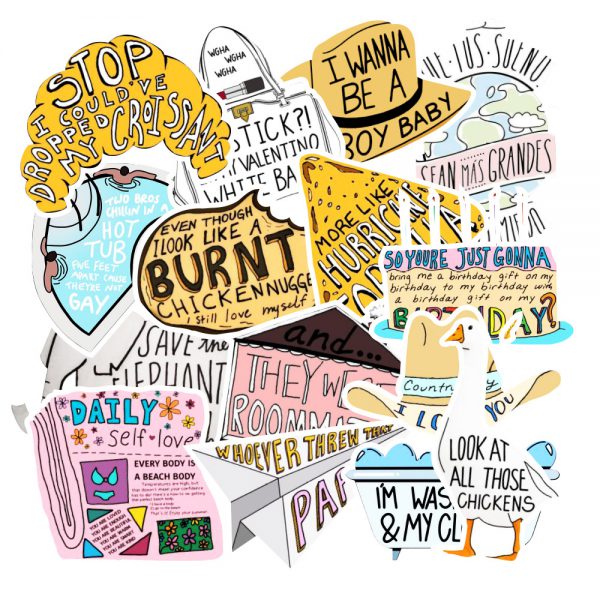 STOP
I COULD'VE
DROPPED
MY CROISSANT
WGHA
WGHA
WGHA
STICK?!
VALENTINO
WHITE BA
I WANNA
BE A
BOY BABY
SEAN MÁS GRANDES
TWO BROS
CHILLIN IN A
HOT
TUB
FIVE FEET
APART CAUSE
THEY'RE NOT
GAY
EVEN THOUGH
I LOOK LIKE A
BURNT
CHICKEN NUGGE
I still love myself
MORE LIKE
HURRICANE
SO YOURE JUST GONNA
bring me a birthday gift on my
birthday to my birthday with
a birthday gift on my
BIRTHDAY?
SAVE the
ELEPHANT
and...
THEY WE
ROOMM
Country
I LO YOU
DAILY
self love
EVERY BODY IS
A BEACH BODY
YOU ARE LOVED
YOU ARE ENOUGH
YOU ARE BEAUTIFUL
YOU ARE SMART
YOU ARE KIND
WHOEVER THREW THA
PAP
I'M WAS
& MY CL
LOOK AT
ALL THOSE
CHICKENS